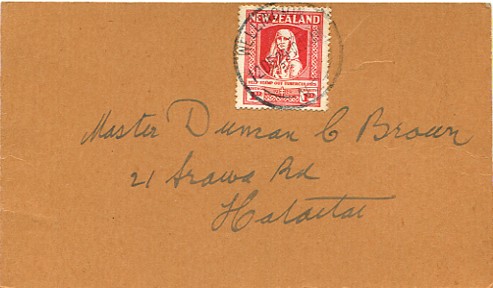 NEW ZEALAND
HELP STAMP OUT TUBERCULOSIS
Master Duncan C Brown
21 Arawa Rd
Hataitai